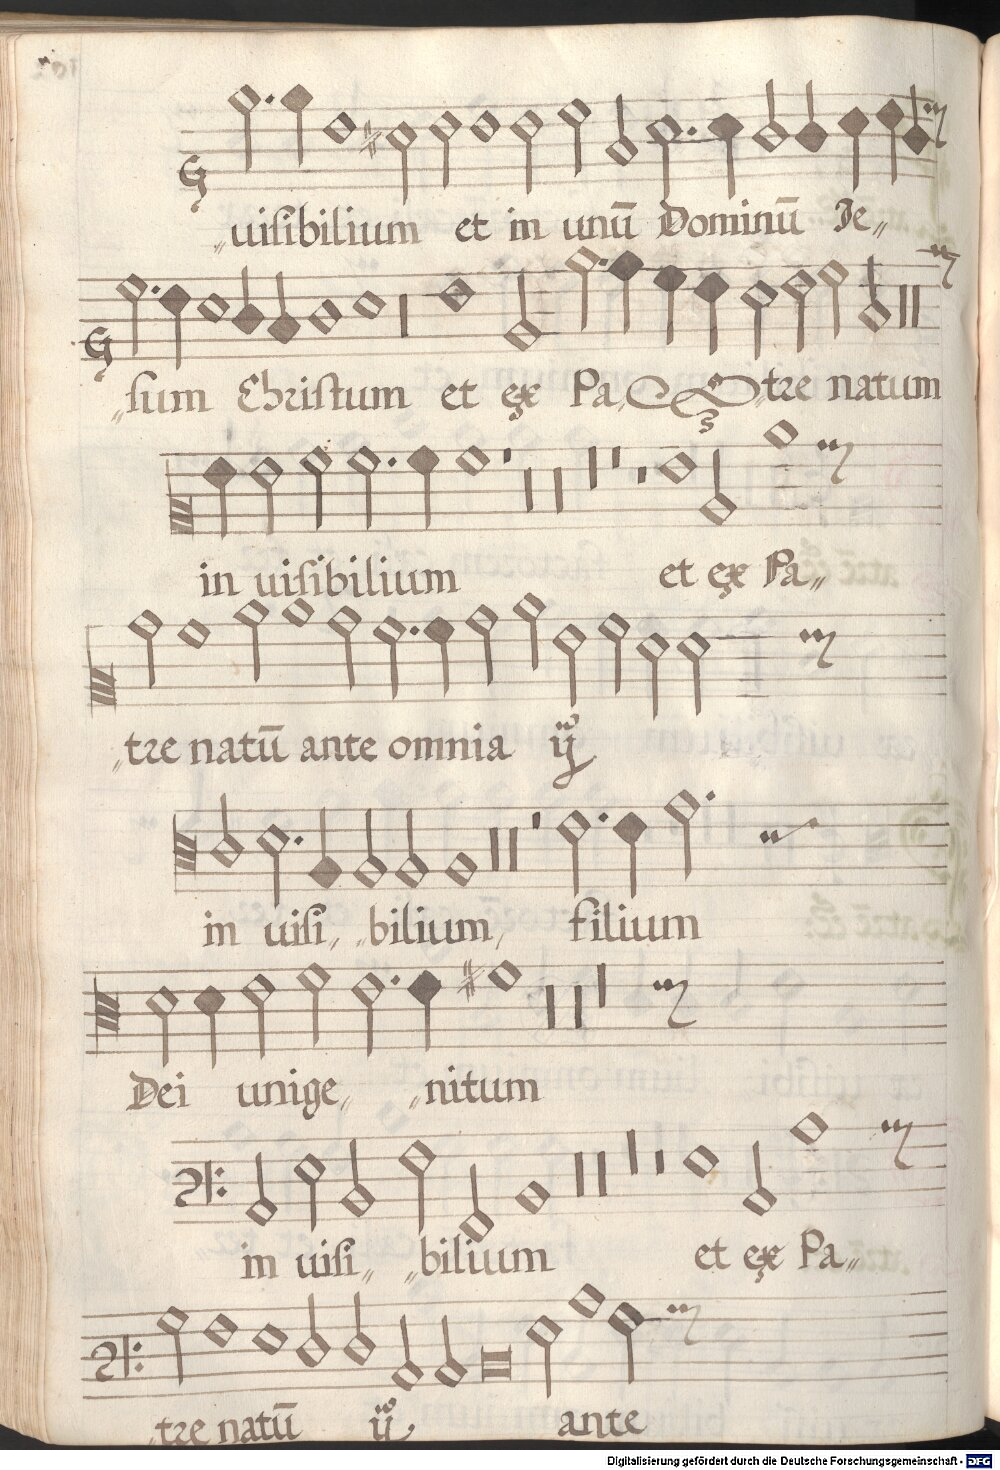 „uisibilium et in unū Dominū Je„
„sum Christum et ex Pa„ „tre natum
in uisibilium et ex Pa„
„tre natū ante omnia ij
in uisi„ „bilium, filium
Dei unige„ „nitum
in uisi„ „bilium et ex Pa„
„tre natū ij ante
Digitalisierung gefördert durch die Deutsche Forschungsgemeinschaft - DFG